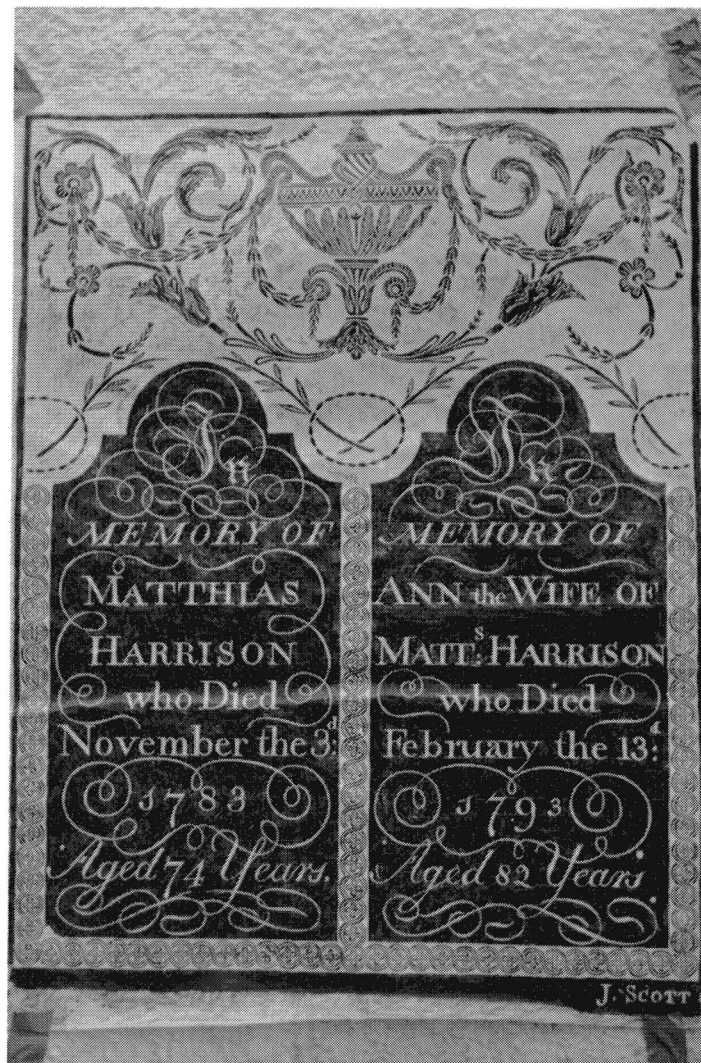 In
MEMORY OF
MATTHIAS
HARRISON
who Died
November the 3d:
1783
Aged 74 Years.
In
MEMORY OF
ANN the WIFE OF
MATTs: HARRISON
who Died
February the 13d:
1793
Aged 82 Years
J. SCOTT